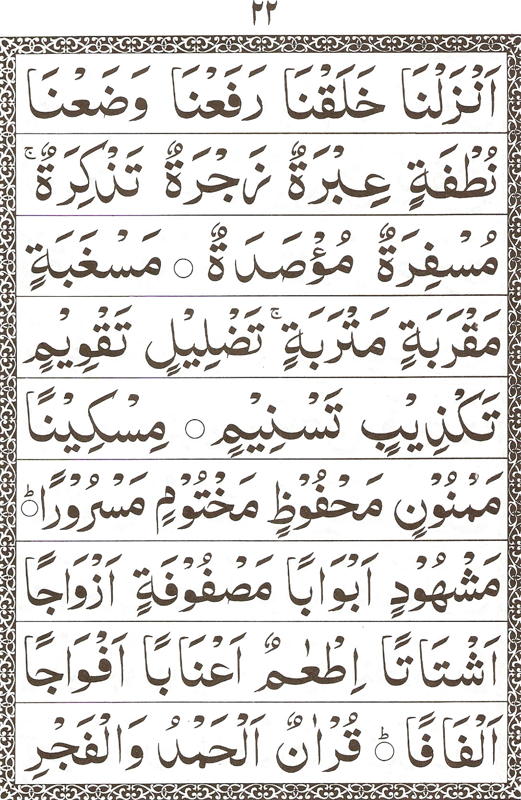 ٢٢
اَنْزَلْنَا خَلَقْنَا رَفَعْنَا وَضَعْنَا
نُطْفَةٍ عِبْرَةٌ زَجْرَةٌ تَذْكِرَةٌ ۚ
مُسْفِرَةٌ مُؤْصَدَةٌ ○ مَسْغَبَةٍ
مَقْرَبَةٍ مَتْرَبَةٍ ۚ تَضْلِيْلٍ تَقْوِيْمٍ
تَكْذِيْبٍ تَسْنِيْمٍ ○ مِسْكِيْنًا
مَمْنُوْنٍ مَحْفُوْظٍ مَخْتُوْمٍ مَسْرُوْرًا ○ؕ
مَشْهُوْدٍ اَبْوَابًا مَصْفُوْفَةٍ اَزْوَاجًا
اَشْتَاتًا اِطْعٰمٌ اَعْنَابًا اَفْوَاجًا
اَلْفَافًا ○ؕ قُرْاٰنٌ اَلْحَمْدُ وَالْفَجْرِ